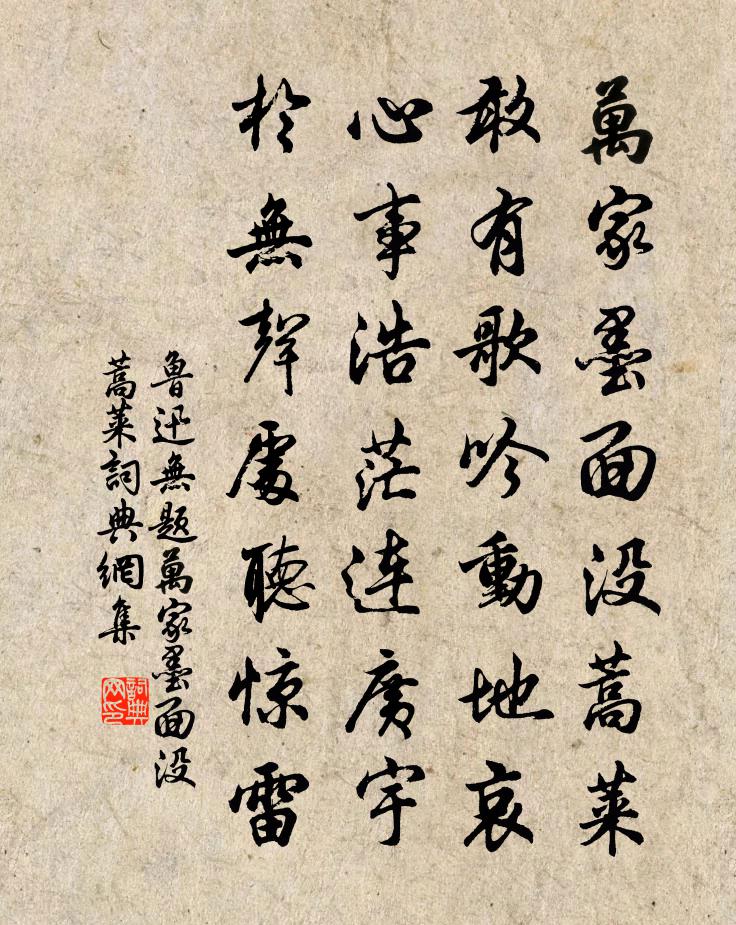 萬家墨面没蒿萊
敢有歌吟動地哀
心事浩茫連廣宇
於無聲處聽惊雷
魯迅無題萬家墨面没
蒿萊詞典網集
詞典
网印